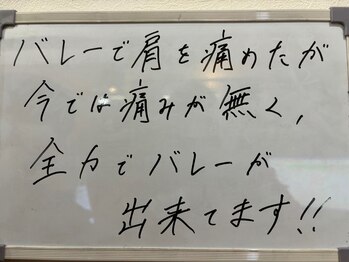 バレーで肩を痛めたが
今では痛みが無く,
全力でバレーが
出来てます!!